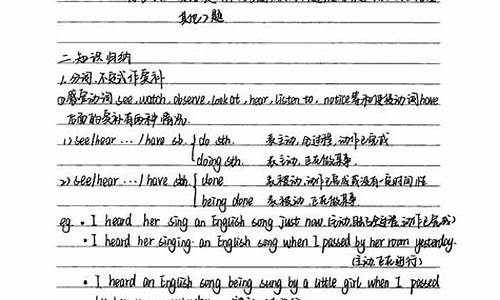 其他2题
二.知识归纳
1.分词、不定式作宾补
①感官动词 see, watch, observe, look at, hear, listen to, notice等和使役动词have
后面的宾补有两种情况.
1) see/hear … / have sb. { do sth. 表主动,全过程,动作已完成
doing sth. 表主动,正在做某事.
2) see/hear … / have sth. { done 表被动,动作已完成或没有一定时间性
being done 表被动,正在做某事.
eg. • I heard her sing an English song just now. (主动,全过程,动作已完成)
• I heard her singing an English song when I passed by her room yesterday.
(主动,正在进行)
• I heard an English song being sung by a little girl when I passed